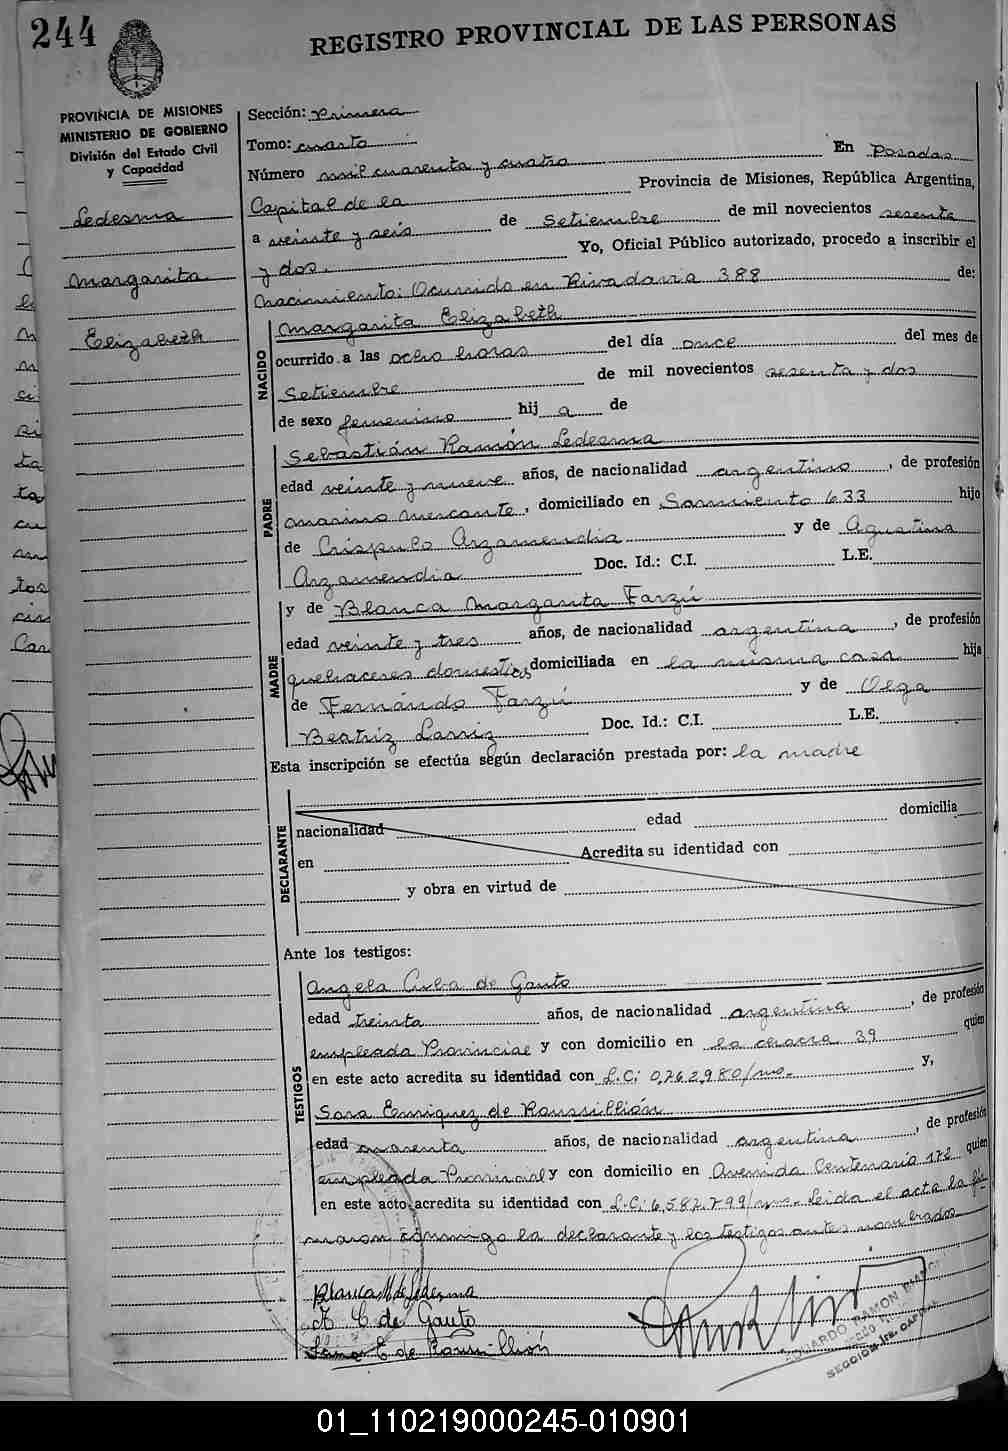 244
REGISTRO PROVINCIAL DE LAS PERSONAS
PROVINCIA DE MISIONES
MINISTERIO DE GOBIERNO
División del Estado Civil
y Capacidad
Ledesma
Margarita
Elizabeth
Sección: Primera
Tomo: cuarto
Número mil cuarenta y cuatro En Posadas
Capital de la Provincia de Misiones, República Argentina,
a veinte y seis de Setiembre de mil novecientos sesenta
y dos. Yo, Oficial Público autorizado, procedo a inscribir el
nacimiento: Ocurrido en Rivadavia 388 de:
NACIDO
Margarita Elizabeth
ocurrido a las ocho horas del día once del mes de
Setiembre de mil novecientos sesenta y dos
de sexo femenino hij a de
PADRE
Sebastián Ramón Ledesma
edad veinte y nueve años, de nacionalidad argentino, de profesión
marino mercante, domiciliado en Sarmiento 633 hijo
de Críspulo Arzamendia y de Agustina
Arzamendia Doc. Id.: C.I. L.E.
MADRE
y de Blanca Margarita Farzú
edad veinte y tres años, de nacionalidad argentina, de profesión
quehaceres domesticos domiciliada en la misma casa hija
de Fernándo Farzú y de Olga
Beatriz Larriz Doc. Id.: C.I. L.E.
Esta inscripción se efectúa según declaración prestada por: la madre
DECLARANTE
nacionalidad edad domicilia
en Acredita su identidad con
y obra en virtud de
Ante los testigos:
TESTIGOS
Angela Cuba de Gauto
edad treinta años, de nacionalidad argentina, de profesión
empleada Provincial y con domicilio en la chacra 39 quien
en este acto acredita su identidad con L.C: 0,762,980/mo. y,
Sara Enriquez de Roussillión
edad cuarenta años, de nacionalidad argentina, de profesión
empleada Provincial y con domicilio en Avenida Centenario 172 quien
en este acto acredita su identidad con L.C: 6,582,799/mo. Leida el acta la fir
maron conmigo la declarante y los testigos antes nombrados
Blanca M de Ledesma
A. C. de Gauto
Sara E de Roussillión
EDUARDO RAMON
SECCION 1ra. CAPITAL
01_110219000245-010901